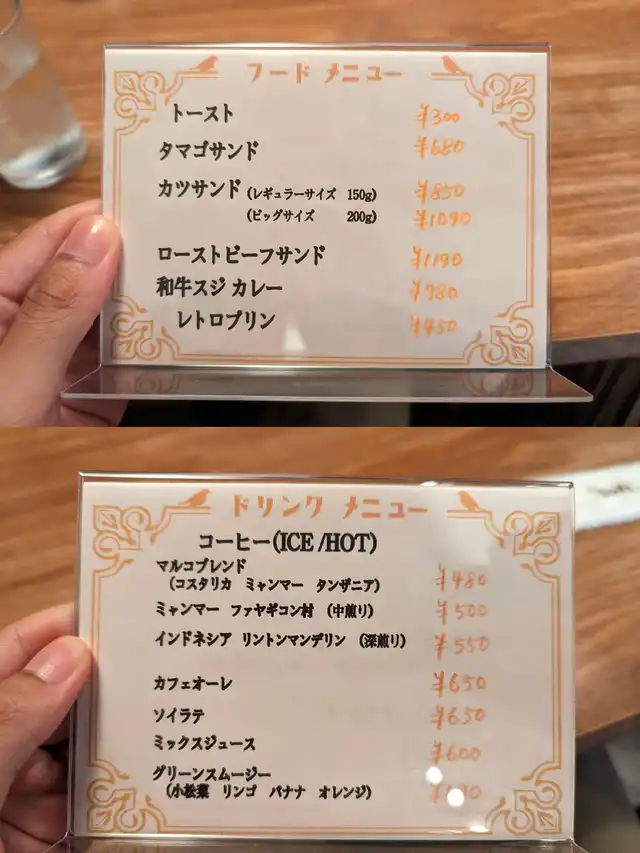 フード メニュー
トースト ¥300
タマゴサンド ¥680
カツサンド (レギュラーサイズ 150g) ¥850
(ビッグサイズ 200g) ¥1090
ローストビーフサンド ¥1190
和牛スジ カレー ¥980
レトロプリン ¥450
ドリンク メニュー
コーヒー(ICE /HOT)
マルコブレンド
(コスタリカ ミャンマー タンザニア) ¥480
ミャンマー ファヤギコン村 (中煎り) ¥500
インドネシア リントンマンデリン (深煎り) ¥550
カフェオーレ ¥650
ソイラテ ¥650
ミックスジュース ¥600
グリーンスムージー
(小松菜 リンゴ バナナ オレンジ)